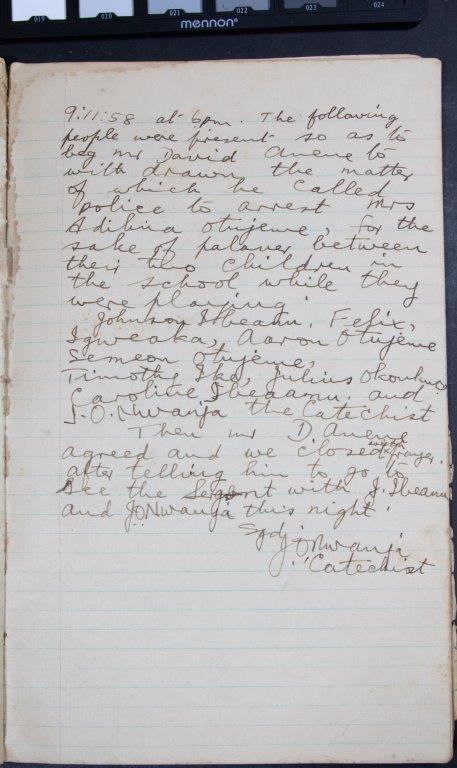 019 020 021 022 023 024
mennon
9:11:58 at 6pm. The following
people were present so as to
beg mr David Anene to
with drawn the matter
of which he called
police to arrest Mrs
Adibina Otujeme, for the
sake of palaver between
their two children in
the school while they
were playing.
Johnson Ibeanu, Felix,
Igweaka, Aaron Otujeme
Semeon Otujeme,
Timothy Ike, Julius
Caroline Ibeanu and
J.O. Nwanja the Catechist
Then mr D. Anene
agreed and we closed with prayer.
after telling him to go to
See the Sergent with J. Ibeanu
and J.O Nwanja this night.
Sgd J.O Nwanja
Catechist